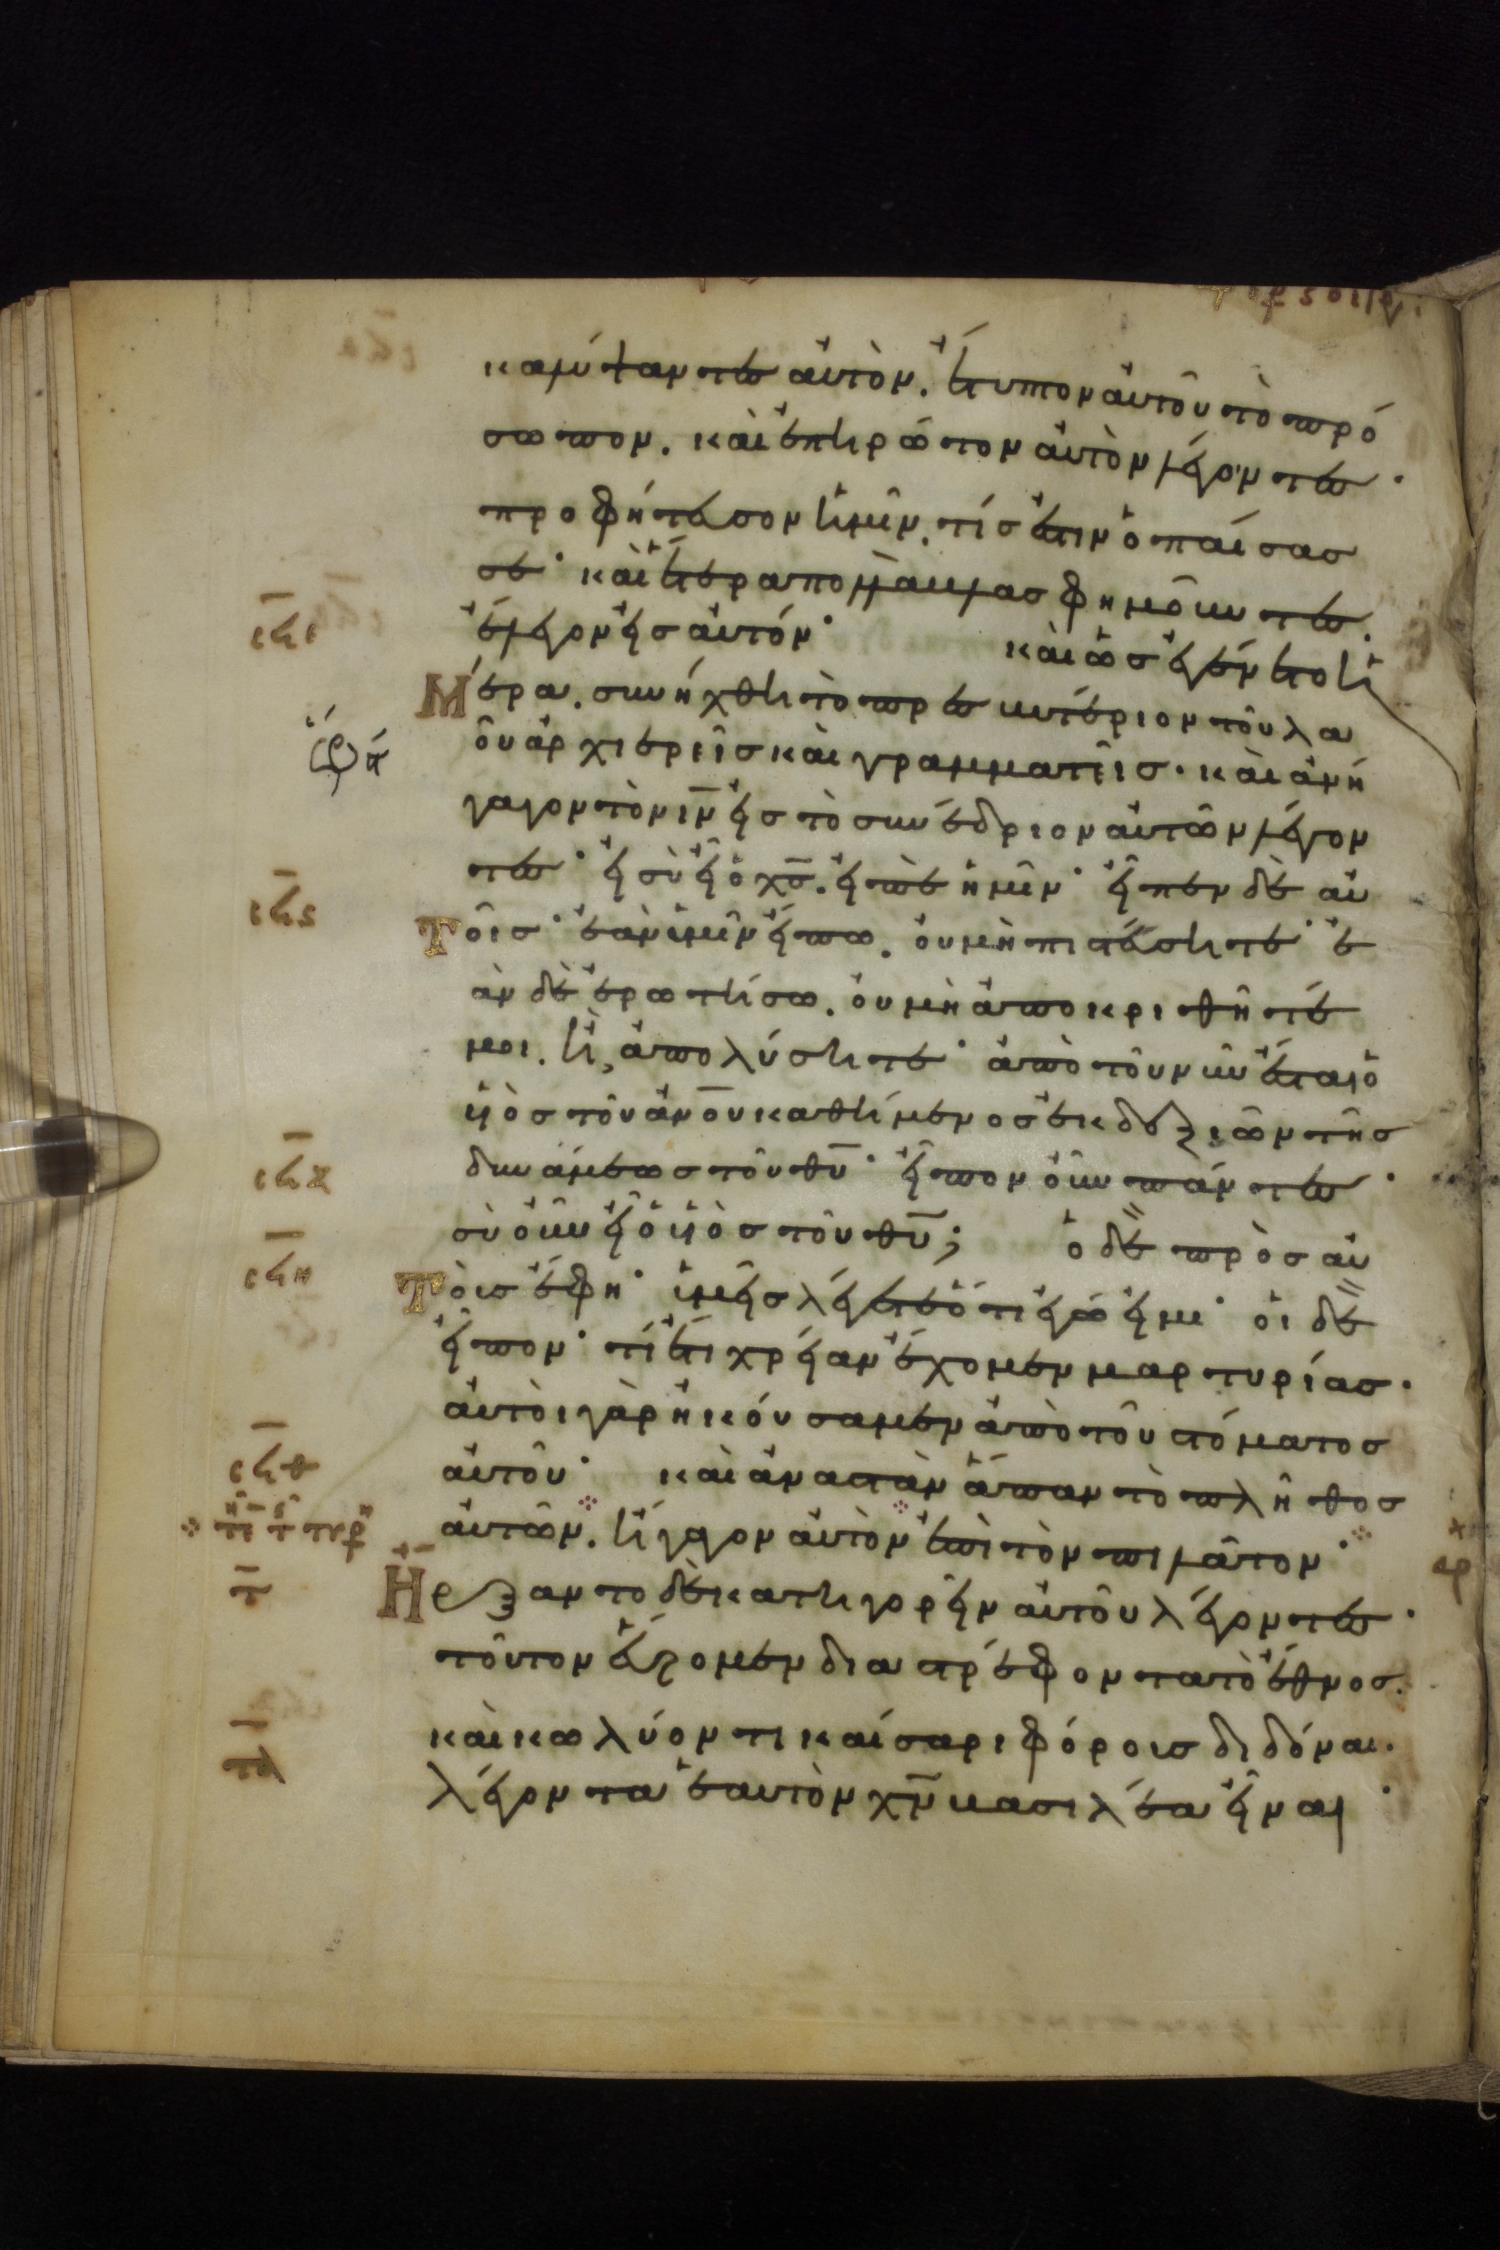 καλύψαντες αὐτὸν. ἔτυπον αὐτοῦ τὸ πρό
σωπον. καὶ ἐπηρώτον αὐτὸν λέγοντες·
προφήτευσον ἡμῖν. τίς ἐστιν ὁ παίσας
σε· καὶ ἕτερα πολλὰ βλασφημοῦντες.
ἔλεγον εἰς αὐτόν· καὶ ὡς ἐγένετο ἡ
Μέρα. συνήχθη τὸ πρεσβυτέριον τοῦ λα
οῦ ἀρχιερεῖς καὶ γραμματεῖς· καὶ ἀνή
γαγον τὸν ιν εἰς τὸ συνέδριον αὐτῶν λέγον
τες· εἰ σὺ εἶ ὁ χς. εἰπὲ ἡμῖν· εἶπεν δὲ αὐ
Τοῖς· ἐὰν ὑμῖν εἴπω. οὐ μὴ πιστεύσητε· ἐ
ὰν δὲ ἐρωτήσω. οὐ μὴ ἀποκριθῆτέ
μοι. ἢ ἀπολύσητε· ἀπὸ τοῦ νῦν ἔσται ὁ
υἱὸς τοῦ ανου καθήμενος ἐκ δεξιῶν τῆς
δυνάμεως τοῦ θυ· εἶπον οὖν πάντες·
σὺ οὖν εἶ ὁ υἱὸς τοῦ θυ; ὁ δὲ πρὸς αὐ
Τοὺς ἔφη· ὑμεῖς λέγετε ὅτι ἐγώ εἰμι· οἱ δὲ
εἶπον· τί ἔτι χρείαν ἔχομεν μαρτυρίας·
αὐτοὶ γὰρ ἠκούσαμεν ἀπὸ τοῦ στόματος
αὐτοῦ· καὶ ἀναστὰν ἅπαν τὸ πλῆθος
αὐτῶν. ἤγαγον αὐτὸν ἐπὶ τὸν πιλᾶτον·
Ἤρξαντο δὲ κατηγορεῖν αὐτοῦ λέγοντες·
τοῦτον εὕρομεν διαστρέφοντα τὸ ἔθνος.
καὶ κωλύοντι καίσαρι φόροις διδόναι.
λέγοντα ἑαυτὸν χν βασιλέα εἶναι·